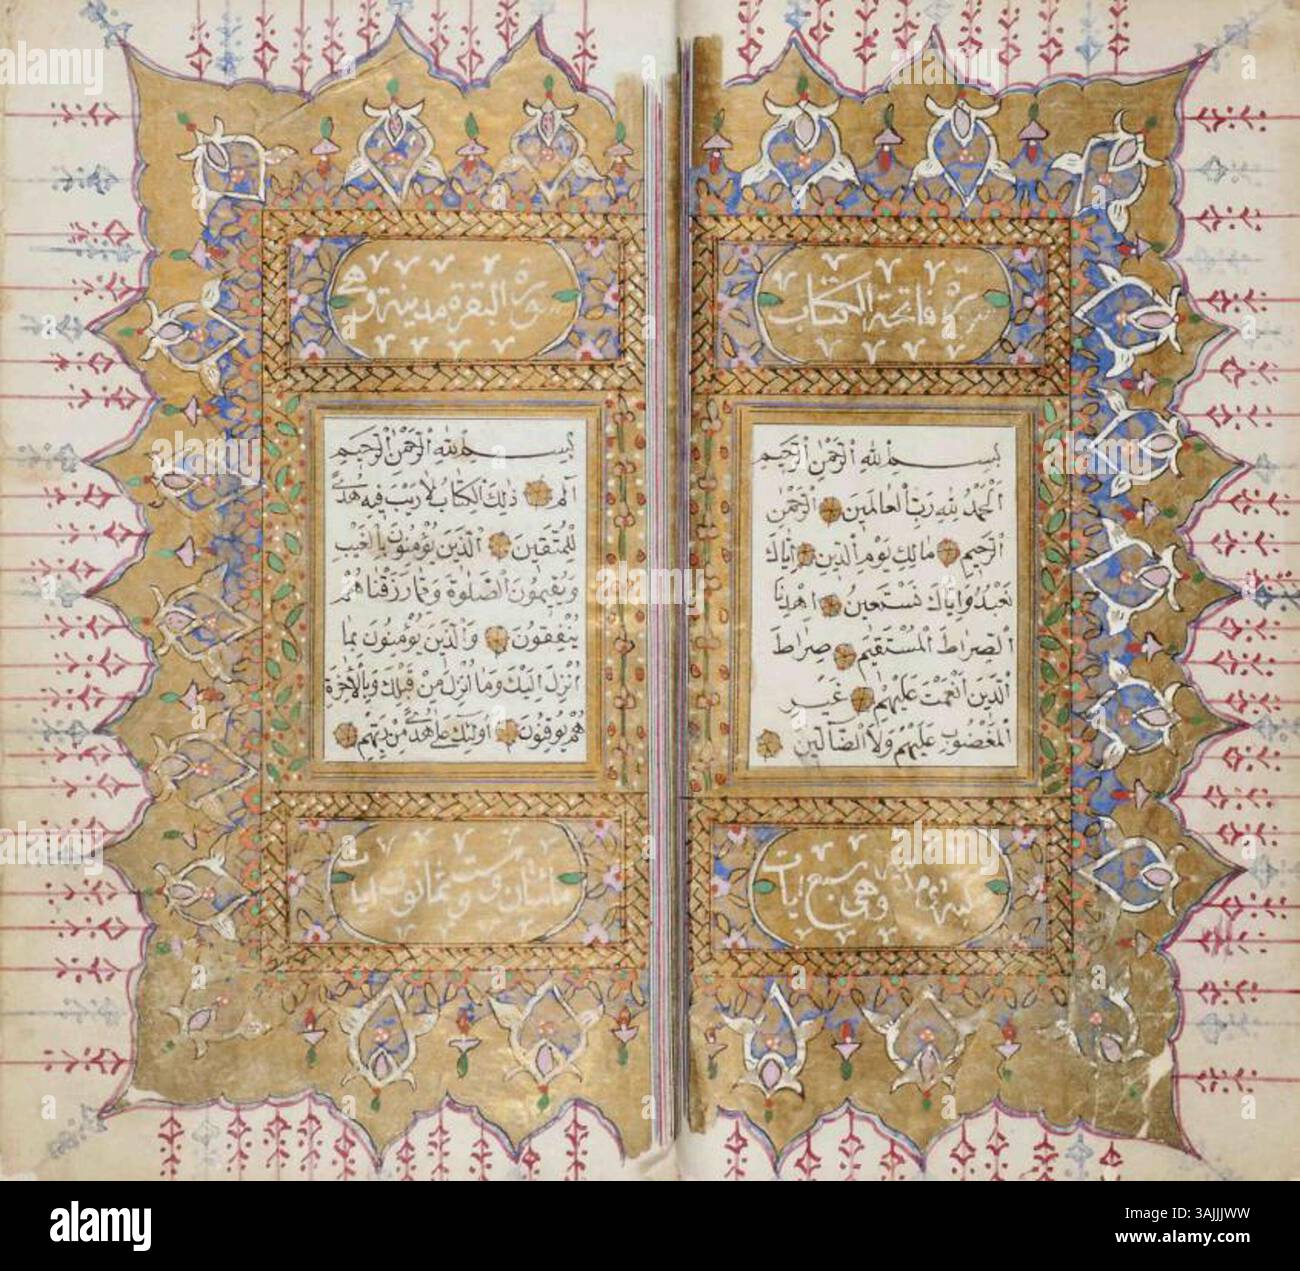 سورة فاتحة الكتاب
بسم الله الرحمن الرحيم
الحمد لله رب العالمين الرحمن
الرحيم مالك يوم الدين اياك
نعبد واياك نستعين اهدنا
الصراط المستقيم صراط
الذين انعمت عليهم غير
المغضوب عليهم ولا الضالين
وهي سبع ايات
سورة البقرة مدينة وهي
بسم الله الرحمن الرحيم
الم ذلك الكتاب لا ريب فيه هدى
للمتقين الذين يؤمنون بالغيب
ويقيمون الصلوة ومما رزقناهم
ينفقون والذين يؤمنون بما
انزل اليك وما انزل من قبلك وبالاخرة
هم يوقنون اولئك على هدى من ربهم
مائتان وست وثمانون ايات
alamy
alamy
Image ID: 3AJJJWW
www.alamy.com